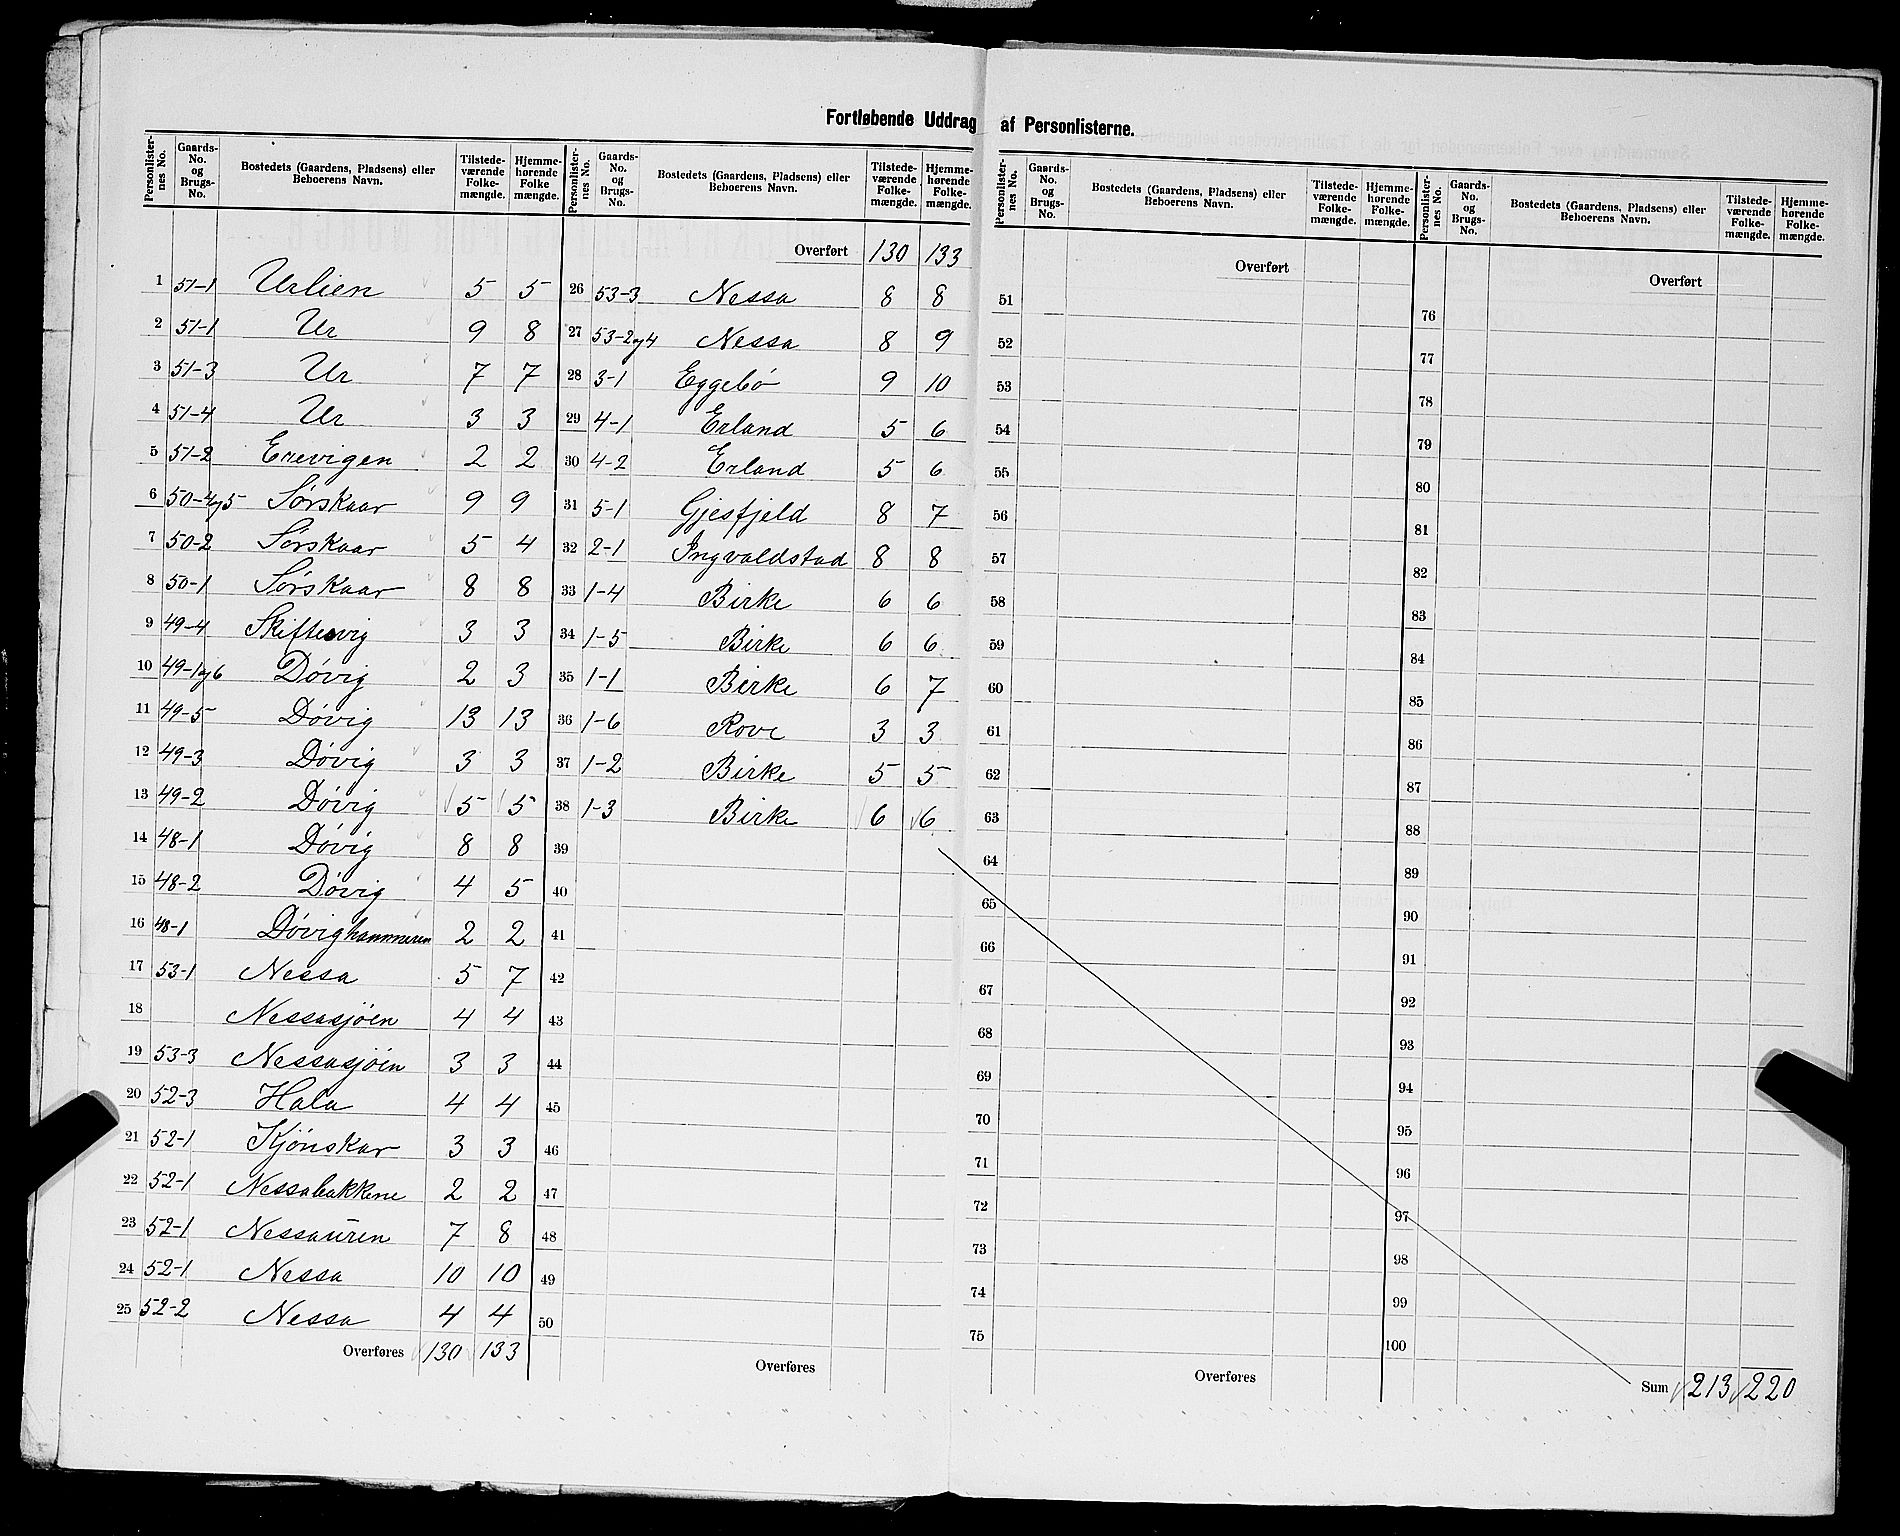 Fortløbende Uddrag af Personlisterne.
Personlister-nes No. | Gaards-No. og Brugs-No. | Bostedets (Gaardens, Pladsens) eller Beboerens Navn. | Tilstede-værende Folke-mængde. | Hjemme-hørende Folke mængde.
1 51-1 Urlien 5 5
2 51-1 Ur 9 8
3 51-3 Ur 7 7
4 51-4 Ur 3 3
5 51-2 Erevigen 2 2
6 50-4og5 Sørskaar 9 9
7 50-2 Sørskaar 5 4
8 50-1 Sørskaar 8 8
9 49-4 Skiftesvig 3 3
10 49-1og6 Døvig 2 3
11 49-5 Døvig 13 13
12 49-3 Døvig 3 3
13 49-2 Døvig 5 5
14 48-1 Døvig 8 8
15 48-2 Døvig 4 5
16 48-1 Døvighammeren 2 2
17 53-1 Nessa 5 7
18 Nessasjöen 4 4
19 53-3 Nessasjöen 3 3
20 52-3 Hala 4 4
21 52-1 Kjönskar 3 3
22 52-1 Nessabakkene 2 2
23 52-1 Nessauren 7 8
24 52-1 Nessa 10 10
25 52-2 Nessa 4 4
Overføres 130 133
Personlister-nes No. | Gaards-No. og Brugs-No. | Bostedets (Gaardens, Pladsens) eller Beboerens Navn. | Tilstede-værende Folke-mængde. | Hjemme-hørende Folke-mængde.
Overført 130 133
26 53-3 Nessa 8 8
27 53-2og4 Nessa 8 9
28 3-1 Eggebø 9 10
29 4-1 Erland 5 6
30 4-2 Erland 5 6
31 5-1 Gjesfjeld 8 7
32 2-1 Ingvaldstad 8 8
33 1-4 Birke 6 6
34 1-5 Birke 6 6
35 1-1 Birke 6 7
36 1-6 Rove 3 3
37 1-2 Birke 5 5
38 1-3 Birke 6 6
39
40
41
42
43
44
45
46
47
48
49
50
Overføres
Personlister-nes No. | Gaards-No. og Brugs-No. | Bostedets (Gaardens, Pladsens) eller Beboerens Navn. | Tilstede-værende Folke-mængde. | Hjemme-hørende Folke-mængde.
Overført
51
52
53
54
55
56
57
58
59
60
61
62
63
64
65
66
67
68
69
70
71
72
73
74
75
Overføres
Personlister-nes No. | Gaards-No. og Brugs-No. | Bostedets (Gaardens, Pladsens) eller Beboerens Navn. | Tilstede-værende Folke-mængde. | Hjemme-hørende Folke-mængde.
Overført
76
77
78
79
80
81
82
83
84
85
86
87
88
89
90
91
92
93
94
95
96
97
98
99
100
Sum 213 220